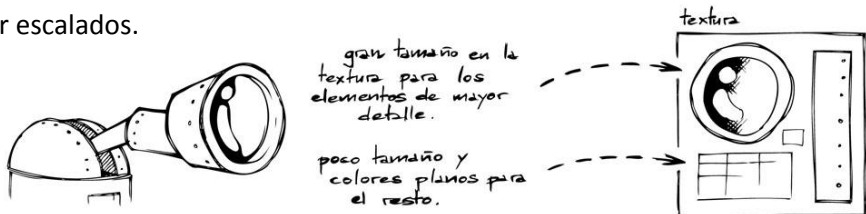 r escalados.
textura
gran tamaño en la
textura para los
elementos de mayor
detalle.
poco tamaño y
colores planos para
el resto.